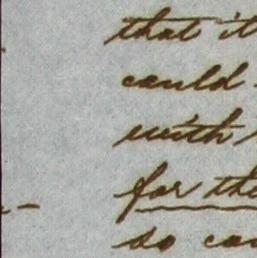 that it
could
with
for the
so